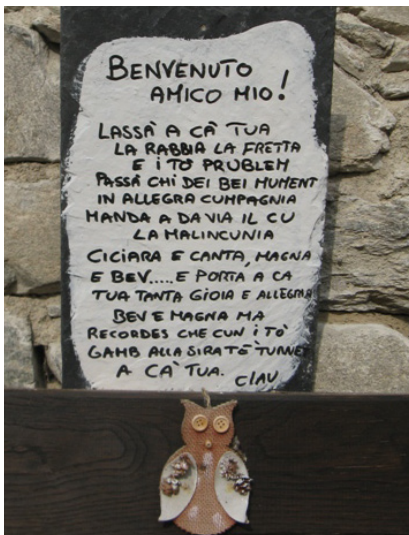 BENVENUTO
AMICO MIO!
LASSÀ A CÀ TUA
LA RABBIA LA FRETTA
E I TÒ PRUBLEM
PASSÀ CHÍ DEI BEI MUMENT
IN ALLEGRA CUMPAGNIA
MANDA A DA VIA IL CU
LA MALINCUNIA
CICIARA E CANTA, MAGNA
E BEV.....E PORTA A CA
TUA TANTA GIOIA E ALLEGRIA
BEV E MAGNA MA
RECORDES CHE CUN I TÒ
GAMB ALLA SIRA TÈ TURNET
A CA' TUA.
CIAU